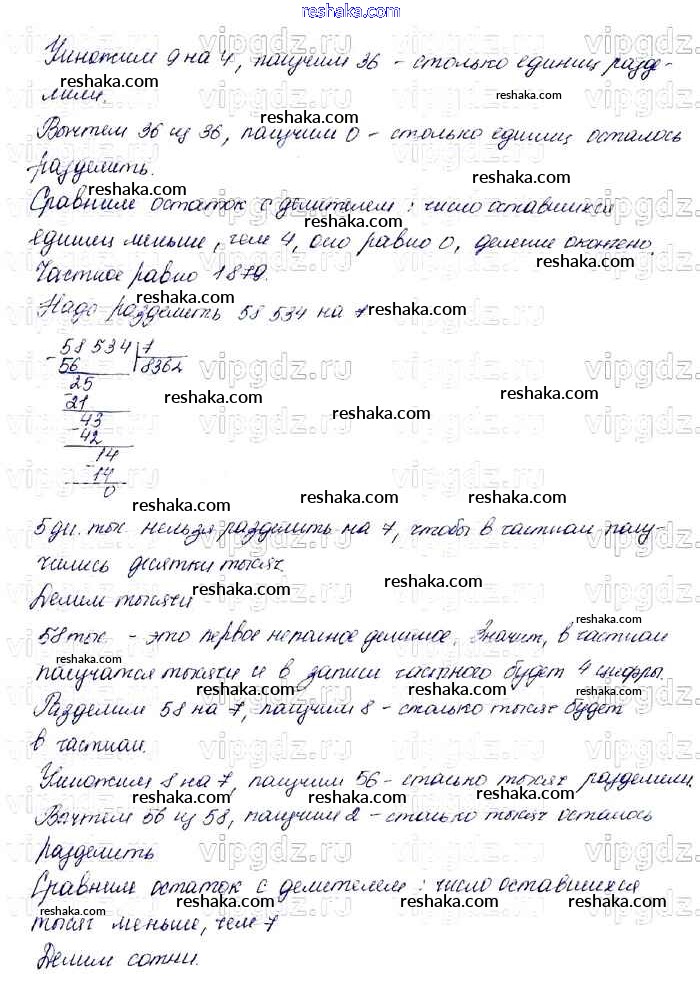 reshaka.com
Умножим 9 на 4, получим 36 - столько единиц разде-
лили.
Вычтем 36 из 36, получим 0 - столько единиц осталось
разделить.
Сравним остаток с делителем: число оставшихся
единиц меньше, чем 4, оно равно 0, деление окончено.
Частное равно 1879.
Надо разделить 58 534 на 7
58 534 7
56 8362
25
21
43
42
14
14
0
5 дес. тыс. нельзя разделить на 7, чтобы в частном полу-
чились десятки тысяч.
Делим тысячи
58 тыс. - это первое неполное делимое. Значит, в частном
получатся тысячи и в записи частного будет 4 цифры.
Разделим 58 на 7, получим 8 - столько тысяч будет
в частном.
Умножим 8 на 7, получим 56 - столько тысяч разделили.
Вычтем 56 из 58, получим 2 - столько тысяч осталось
разделить
Сравним остаток с делителем: число оставшихся
тысяч меньше, чем 7
Делим сотни.